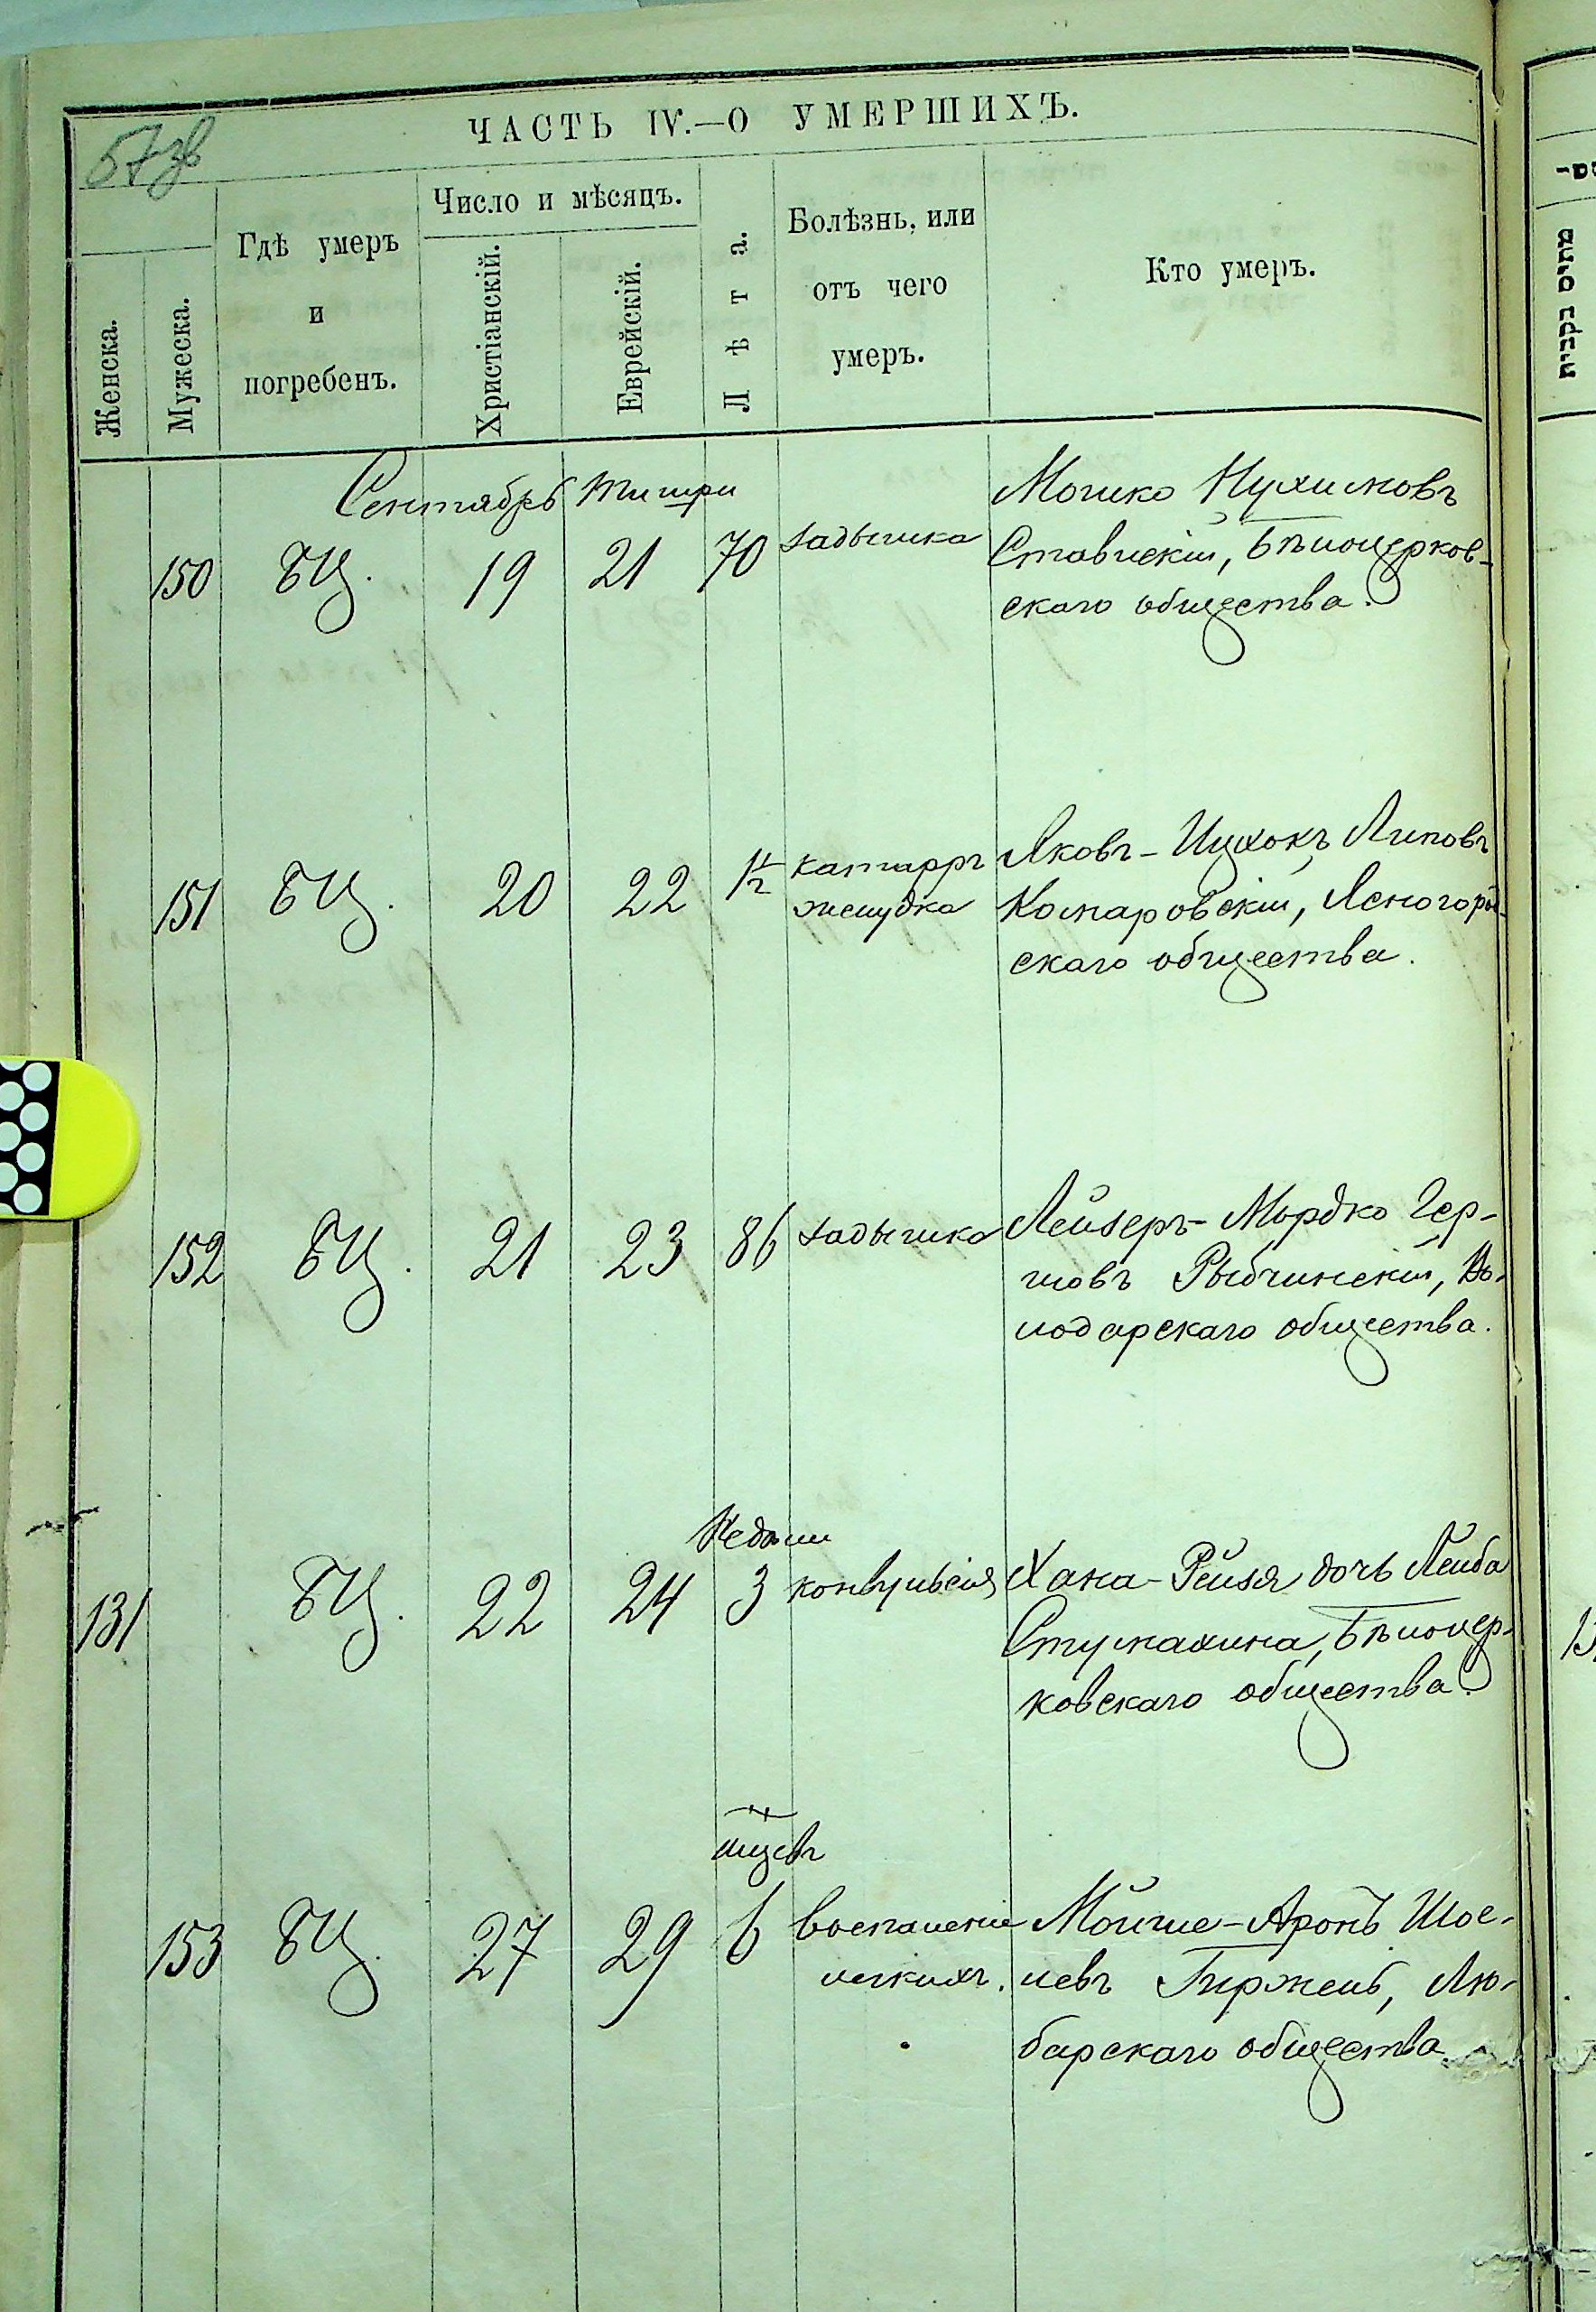 57 зв
ЧАСТЬ IV.—О УМЕРШИХЪ.
Женска.
Мужеска.
Гдѣ умеръ
и
погребенъ.
Число и мѣсяцъ.
Христіанскій.
Еврейскій.
Лѣта.
Болѣзнь, или
отъ чего
умеръ.
Кто умеръ.
Сентябрь Тишри
150 БЦ. 19 21 70 Задышка Мошко Нухимовъ
Ставискій, Бѣлоцерков-
скаго общества.
151 БЦ. 20 22 1½ Катарръ Яковъ-Ицхокъ Липовъ
желудка Комаровскій, Ясногород-
скаго общества.
152 БЦ. 21 23 86 Задышка Лейзеръ-Мордко Гер-
шовъ Рыбчинскій, Во-
лодарскаго общества.
Недѣли
131 БЦ. 22 24 3 конвульсія Хана-Рейзя дочь Лейба
Стумахина, Бѣлоцер-
ковскаго общества.
мцевъ
153 БЦ. 27 29 6 Воспаленіе Мойше-Аронъ Шое-
легкихъ. левъ Гиржель, Лю-
барскаго общества